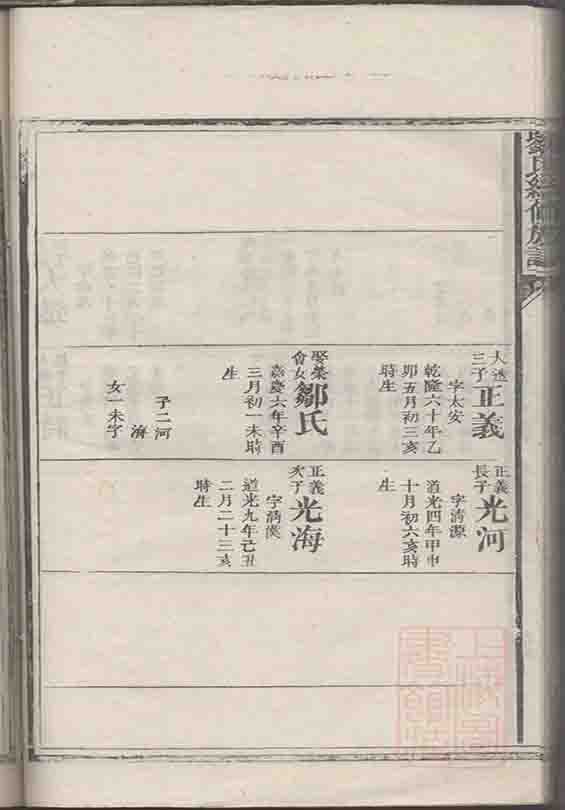 劉氏叅修族譜
大透
三子
正義
字太安
乾隆六十年乙
卯五月初三亥
時生
娶
會女
鄒氏
嘉慶六年辛酉
三月初一未時
生
子二河
海
女一未字
正義
長子
光河
字清源
道光四年甲申
十月初六亥時
生
正義
次子
光海
字清漢
道光九年己丑
二月二十三亥
時生
上海圖
書館藏